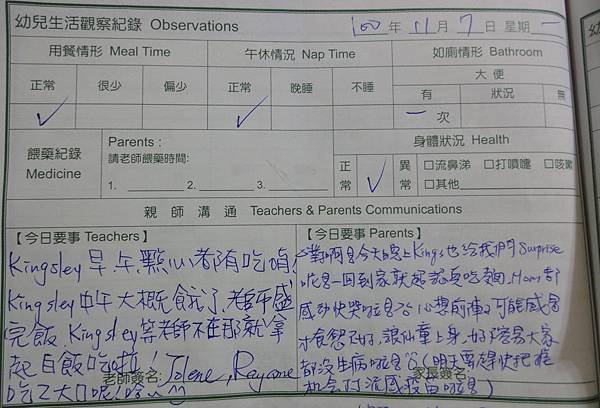 幼兒生活觀察紀錄 Observations 100 年 11 月 7 日 星期 一
用餐情形 Meal Time 午休情況 Nap Time 如廁情形 Bathroom
正常 很少 偏少 正常 晚睡 不睡 大便
有 狀況 無
一 次
餵藥紀錄 Medicine
Parents :
請老師餵藥時間:
1. 2. 3.
身體狀況 Health
正常 異常 □流鼻涕 □打噴嚏 □咳嗽
□其他
親師溝通 Teachers & Parents Communications
【今日要事 Teachers】
Kingsley 早、午、點心都有吃唷!
Kingsley 中午大概餓了,老師盛
完飯, Kingsley 等老師不在那就拿
起白飯吃啦!
吃了大口呢!哈~
老師簽名: Jolene, Rayanne
【今日要事 Parents】
對啊!今天晚上 Kings 也給我們 Surprise
呢!一回到家就認真吃麵, Mom 都
感動快哭啦! 心想前陣子可能感冒
才食慾不好, 讓仙童上身, 好險另大家
都沒生病啦! (明天要趕快把握
机会打流感疫苗啦!)
家長簽名: